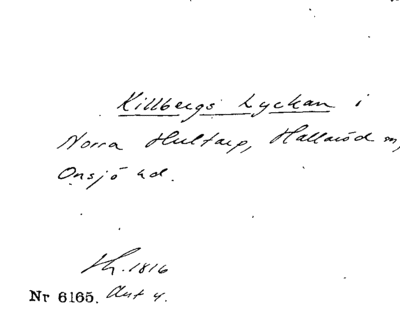 Killbergs Lyckan i
Norra Hultarp, Hallaröd sn,
Onsjö hd.
Sk. 1816
Nr 6165. Akt 4.